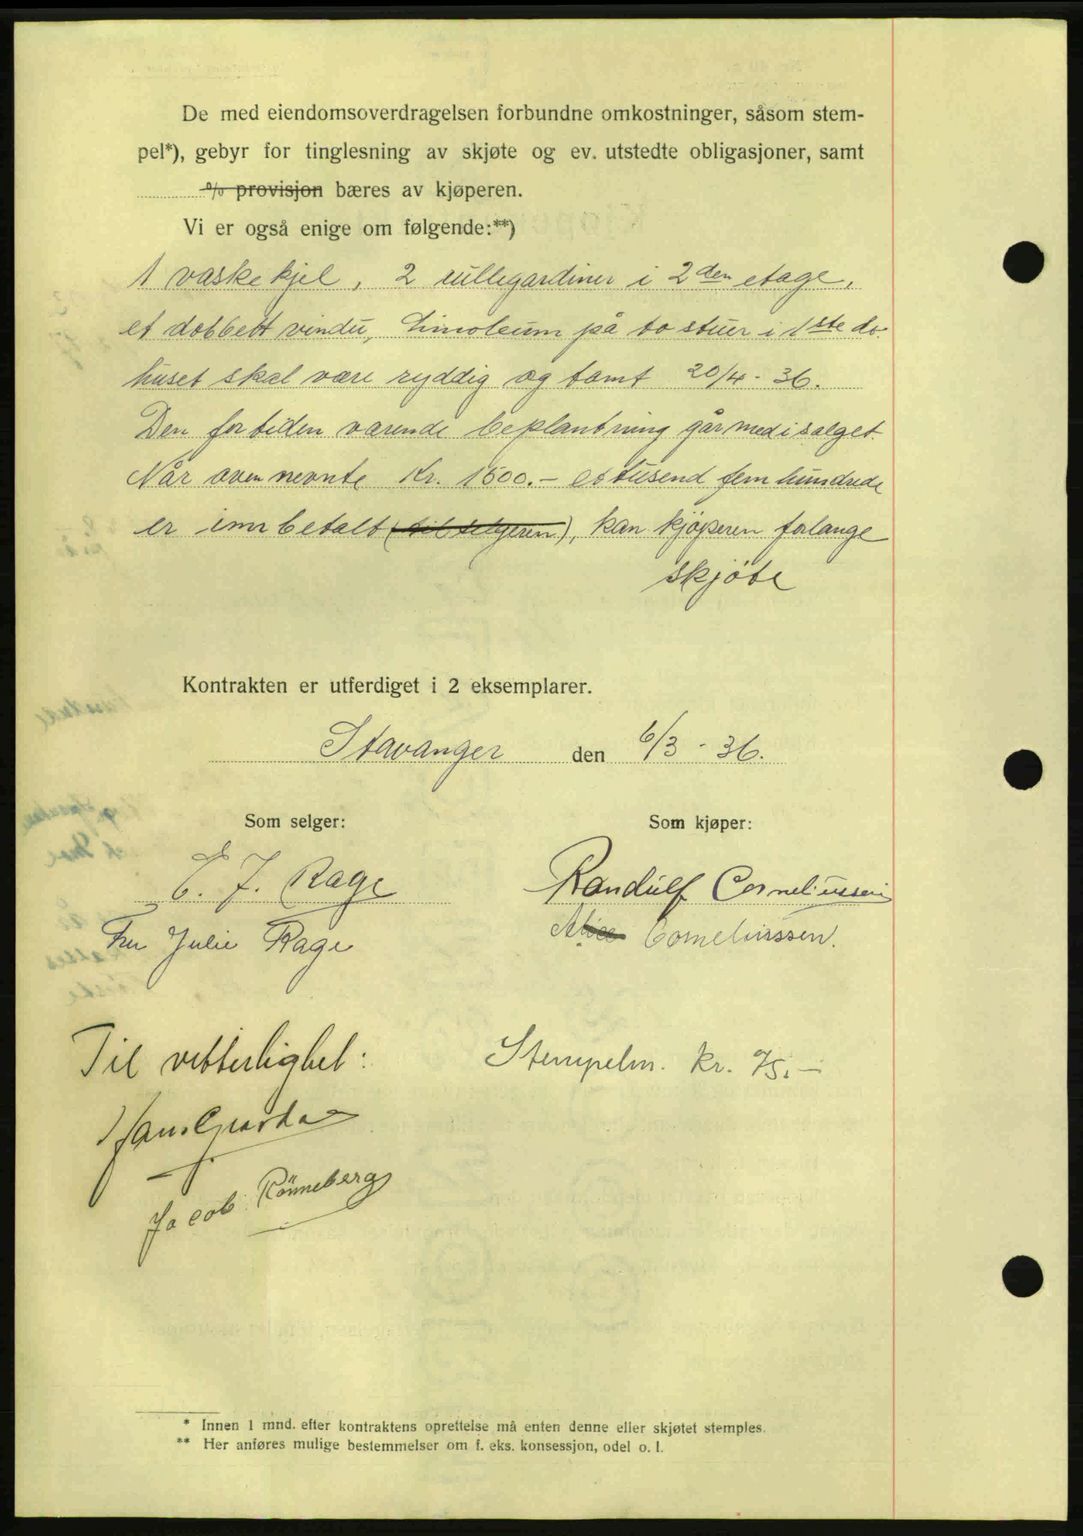 De med eiendomsoverdragelsen forbundne omkostninger, såsom stem-
pel*), gebyr for tinglesning av skjøte og ev. utstedte obligasjoner, samt
% provisjon bæres av kjøperen.
Vi er også enige om følgende:**)
1 vaskekjel, 2 rullegardiner i 2den etage,
et dobbelt vindu, Linoleum på to stuer i 1ste do.
huset skal være ryddig og tomt 20/4 - 36.
Den for tiden værende beplantning går med i salget.
Når ovennevnte Kr. 1500.- ettusend femhundrede
er innbetalt (til selgeren), kan kjøperen forlange
skjøte
Kontrakten er utferdiget i 2 eksemplarer.
Stavanger den 6/3 - 36.
Som selger: Som kjøper:
E. J. Rage Randulf Corneliussen
Fru Julie Rage Alice Corneliussen.
Til vitterlighet: Stempelm. Kr. 75.-
Hans
Jacob Rönneberg
* Innen 1 mnd. efter kontraktens oprettelse må enten denne eller skjøtet stemples.
** Her anføres mulige bestemmelser om f. eks. konsessjon, odel o. l.